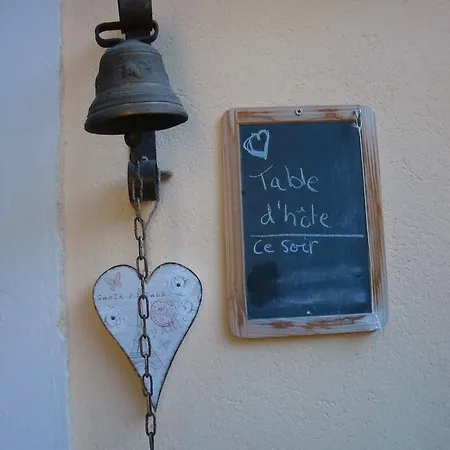 Table
d'hôte
Ce soir